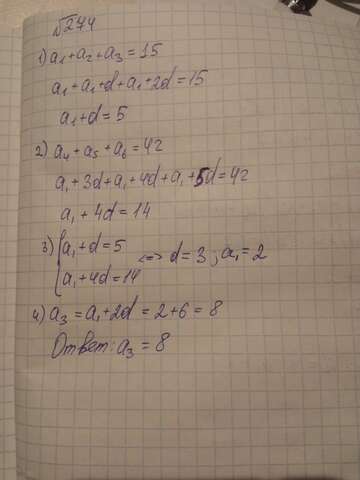 √274
1) a₁+a₂+a₃=15
a₁+a₁+d+a₁+2d=15
a₁+d=5
2) a₄+a₅+a₆=42
a₁+3d+a₁+4d+a₁+5d=42
a₁+4d=14
3) {a₁+d=5
{a₁+4d=14 <=> d=3; a₁=2
4) a₃=a₁+2d=2+6=8
Ответ: a₃=8